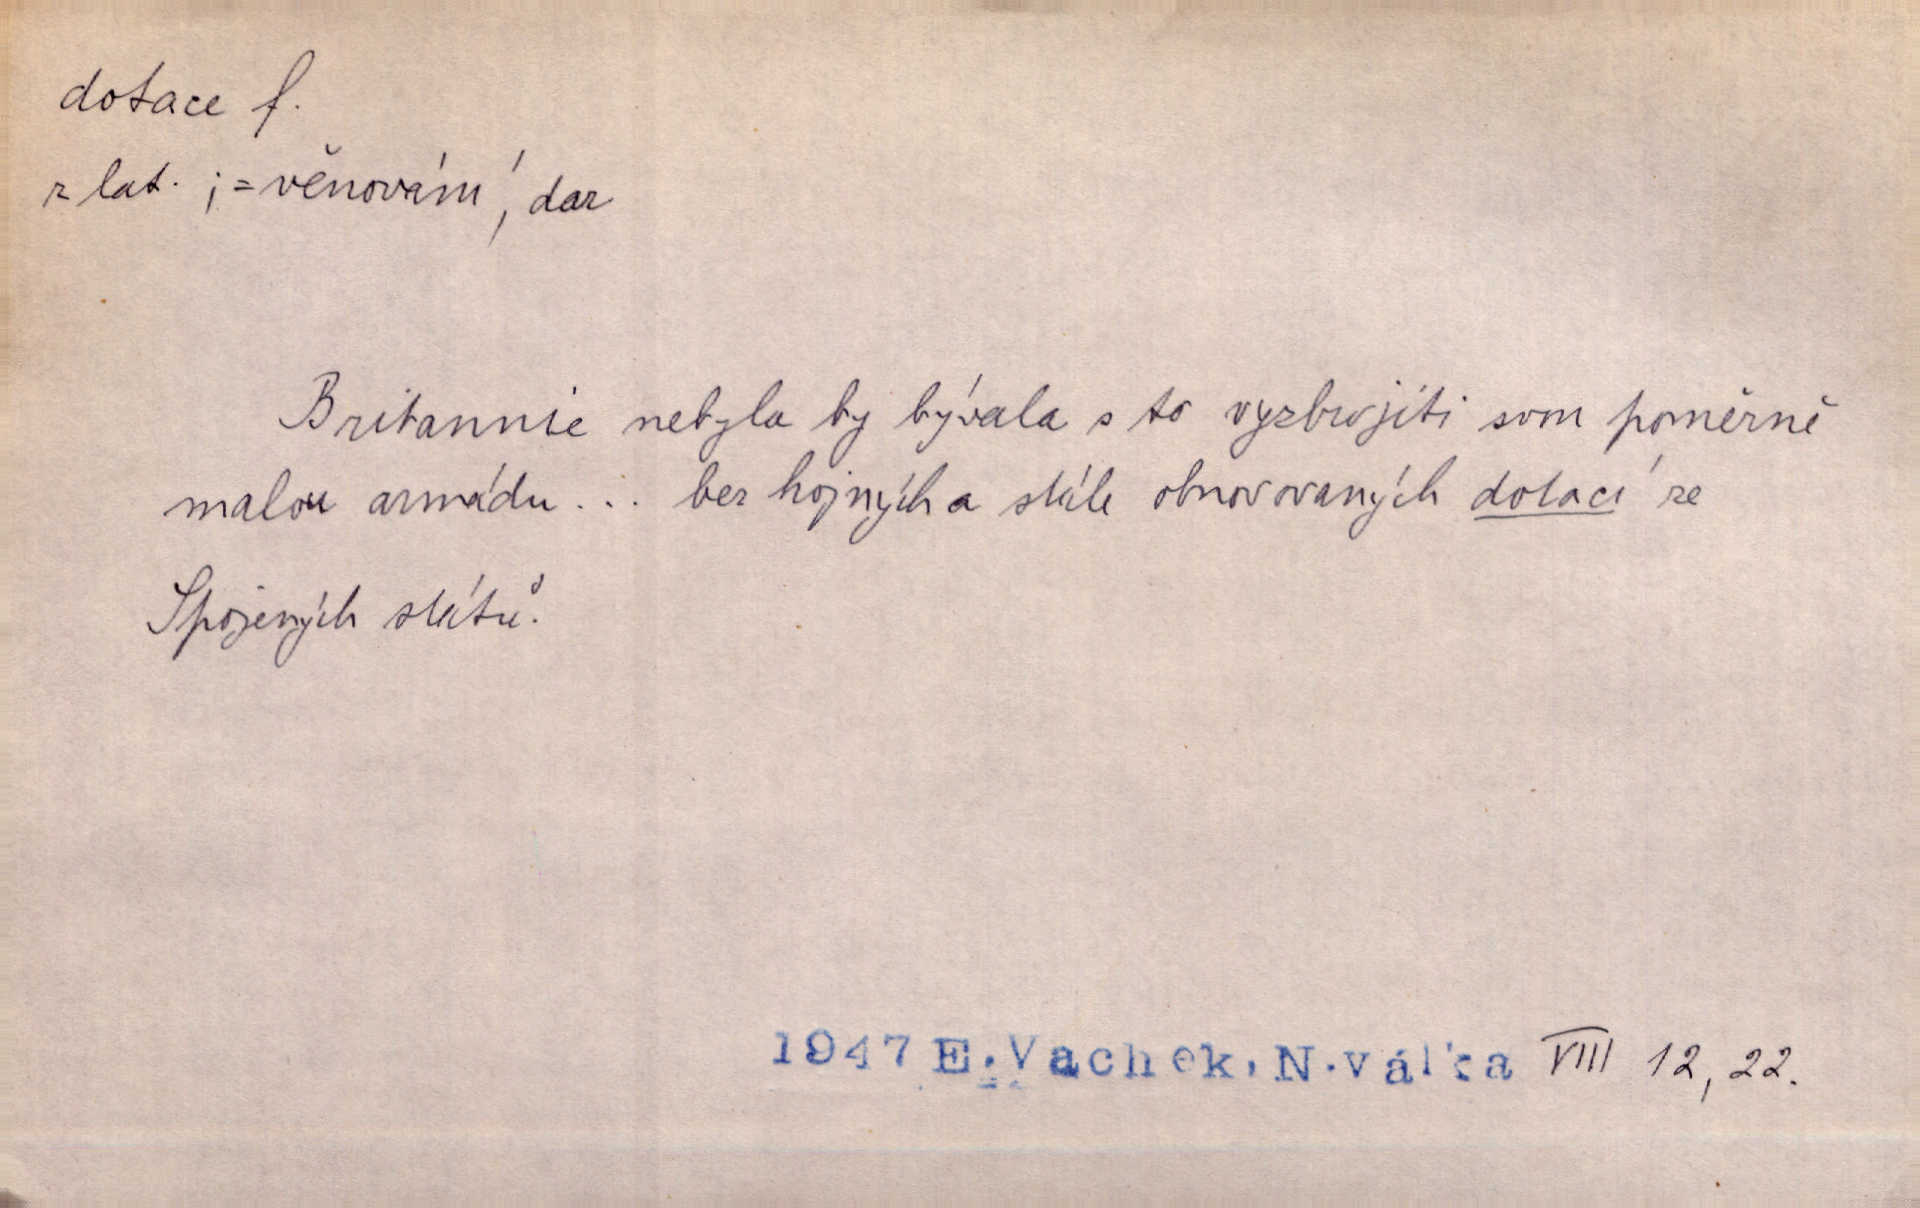 dotace f.
z lat. ; = věnování, dar
Britannie nebyla by bývala s to vyzbrojiti svou poměrně
malou armádu ... bez hojných a stále obnovovaných dotací ze
Spojených států.
1947 E. Vachek, N. válka VIII 12, 22.